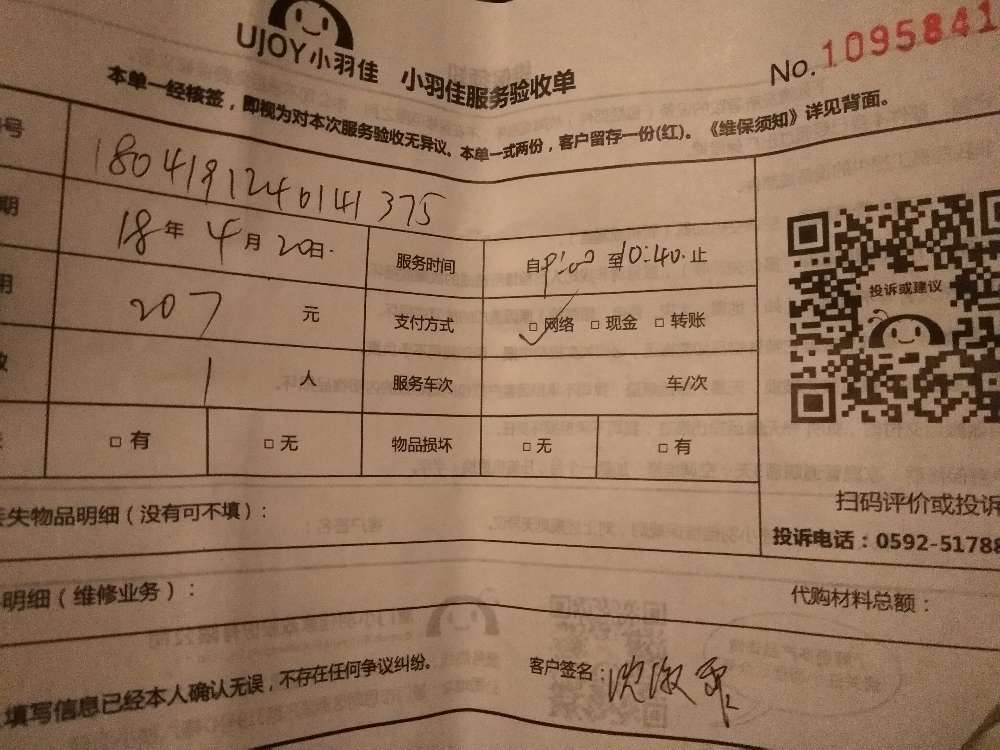 UJOY小羽佳 小羽佳服务验收单
No. 1095841
本单一经核签，即视为对本次服务验收无异议。本单一式两份，客户留存一份(红)。《维保须知》详见背面。
号 1804191240141375
期 18年4月20日 服务时间 自9:00至10:40止
用 207 元 支付方式 □网络 □现金 □转账
数 1 人 服务车次 车/次
□有 □无 物品损坏 □无 □有
投诉或建议
扫码评价或投诉
投诉电话：0592-51788
失物品明细（没有可不填）：
明细（维修业务）： 代购材料总额：
填写信息已经本人确认无误，不存在任何争议纠纷。 客户签名：沈淑